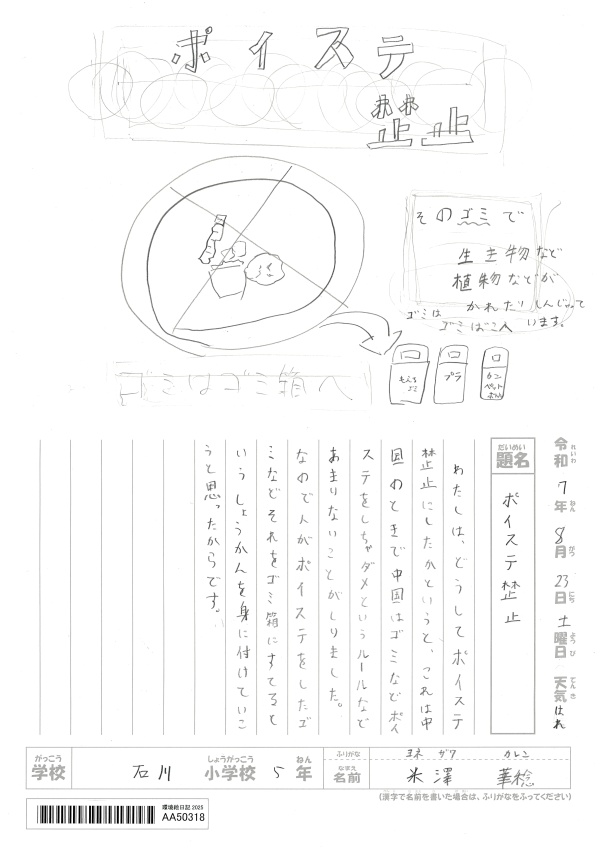 ポイステ
禁止
そのゴミで
生き物など
植物などが
かれたりしんじゃって
います。
ゴミは
ゴミばこへ
もえるゴミ
プラ
カン
ペット
ボトル
ゴミはゴミ箱へ
令和7年8月23日土曜日 天気はれ
れいわ ねん がつ にち よう び てんき
だいめい
題名 ポイステ禁止
わたしは、どうしてポイステ
禁止にしたかというと、これは中
国のときで中国はゴミなどポイ
ステをしちゃダメというルールなど
あまりないことがしりました。
なので人がポイステをしたゴ
ミなどそれをゴミ箱にすてると
いうしょうかんを身に付けていこ
うと思ったからです。
がっこう しょうがっこう ねん
学校 石川 小学校 5年
ふりがな ヨネ ザワ カレン
なまえ
名前 米澤 華稔
(漢字で名前を書いた場合は、ふりがなをふってください)
環境絵日記 2025
AA50318